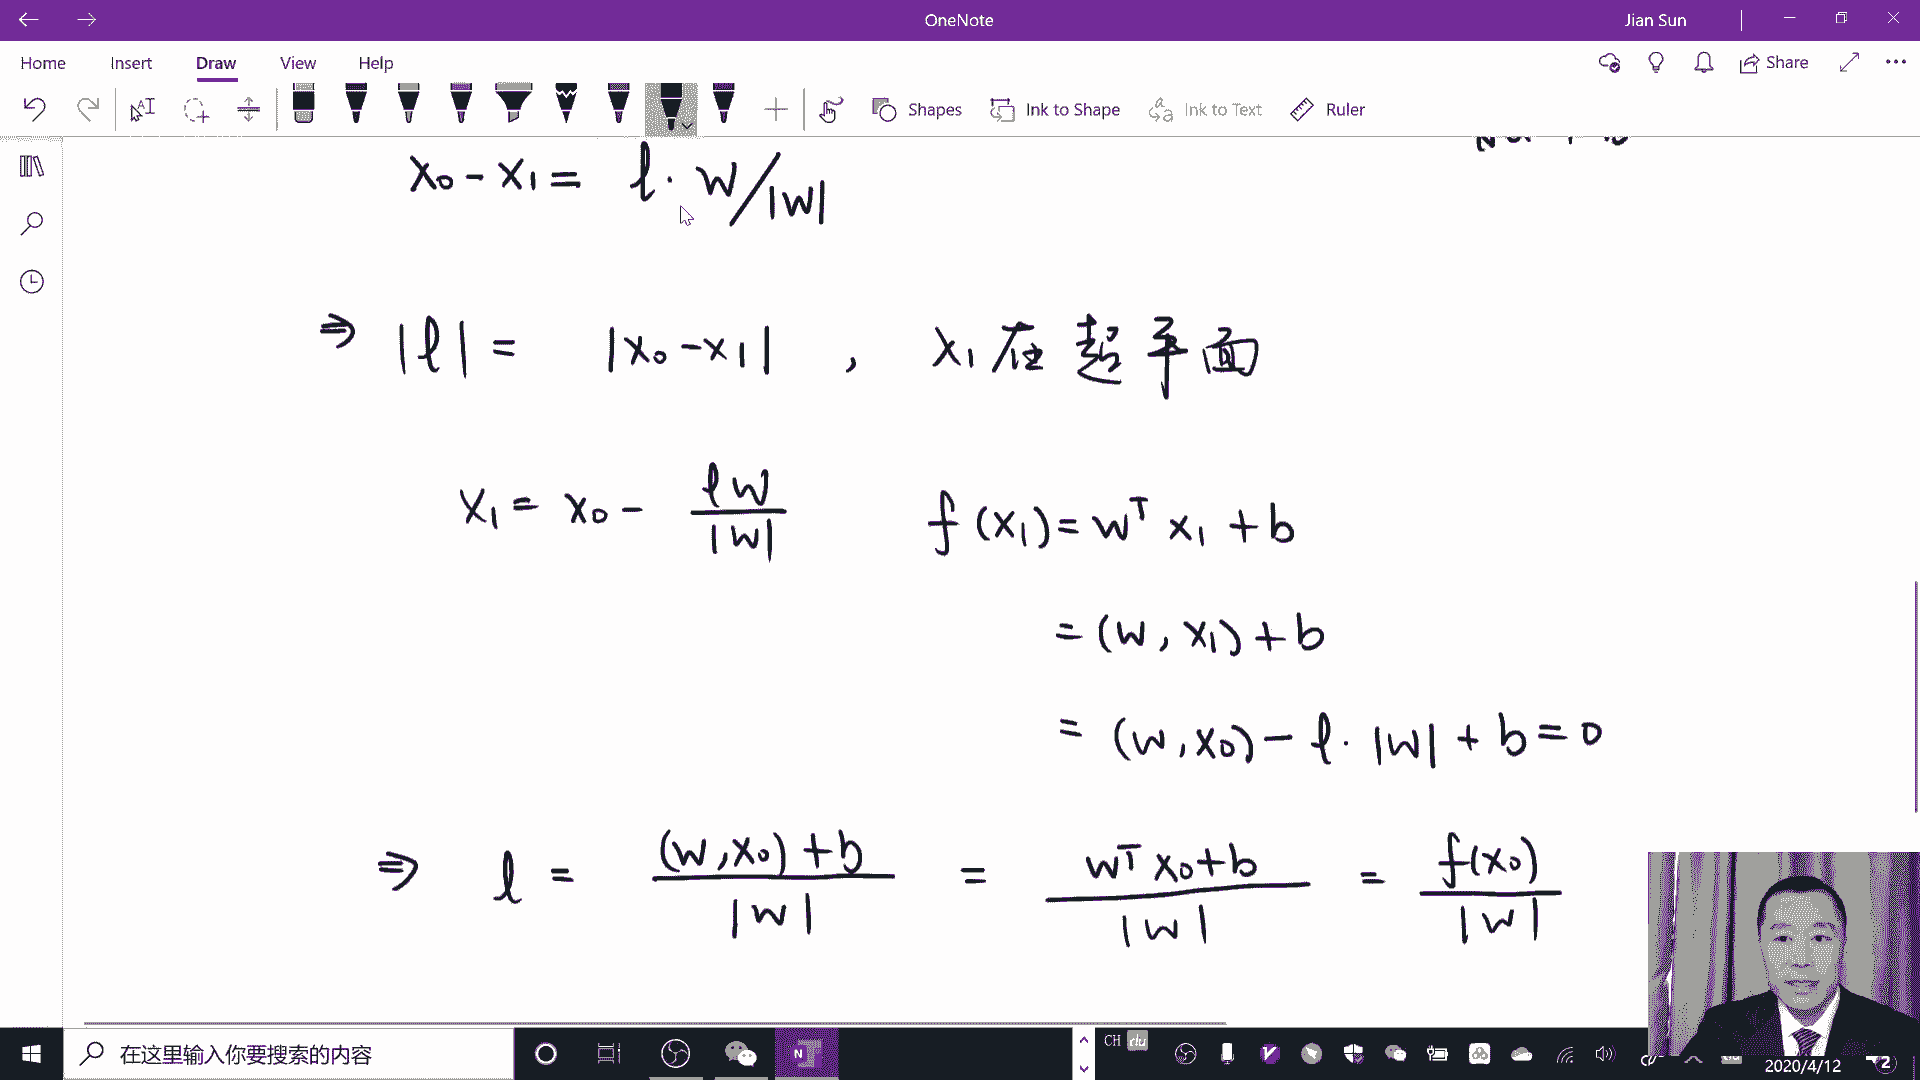 OneNote
Jian Sun
Home Insert Draw View Help
Share
Shapes Ink to Shape Ink to Text Ruler
x₀ - x₁ = l · w/|w|
⇒ |l| = |x₀ - x₁| , x₁在超平面
x₁ = x₀ - lw/|w| f(x₁) = wᵀ x₁ + b
= (w, x₁) + b
= (w, x₀) - l · |w| + b = 0
⇒ l = (w, x₀) + b / |w| = wᵀ x₀ + b / |w| = f(x₀) / |w|
在这里输入你要搜索的内容
CH du
2020/4/12
2